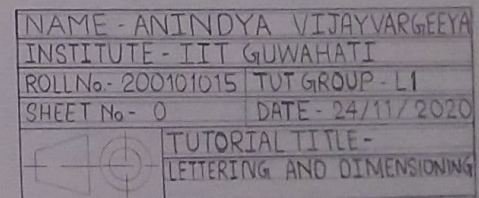 NAME - ANINDYA VIJAYVARGEEYA
INSTITUTE - IIT GUWAHATI
ROLL No.- 200101015 TUT GROUP - L1
SHEET No - 0 DATE - 24/11/2020
TUTORIAL TITLE -
LETTERING AND DIMENSIONING